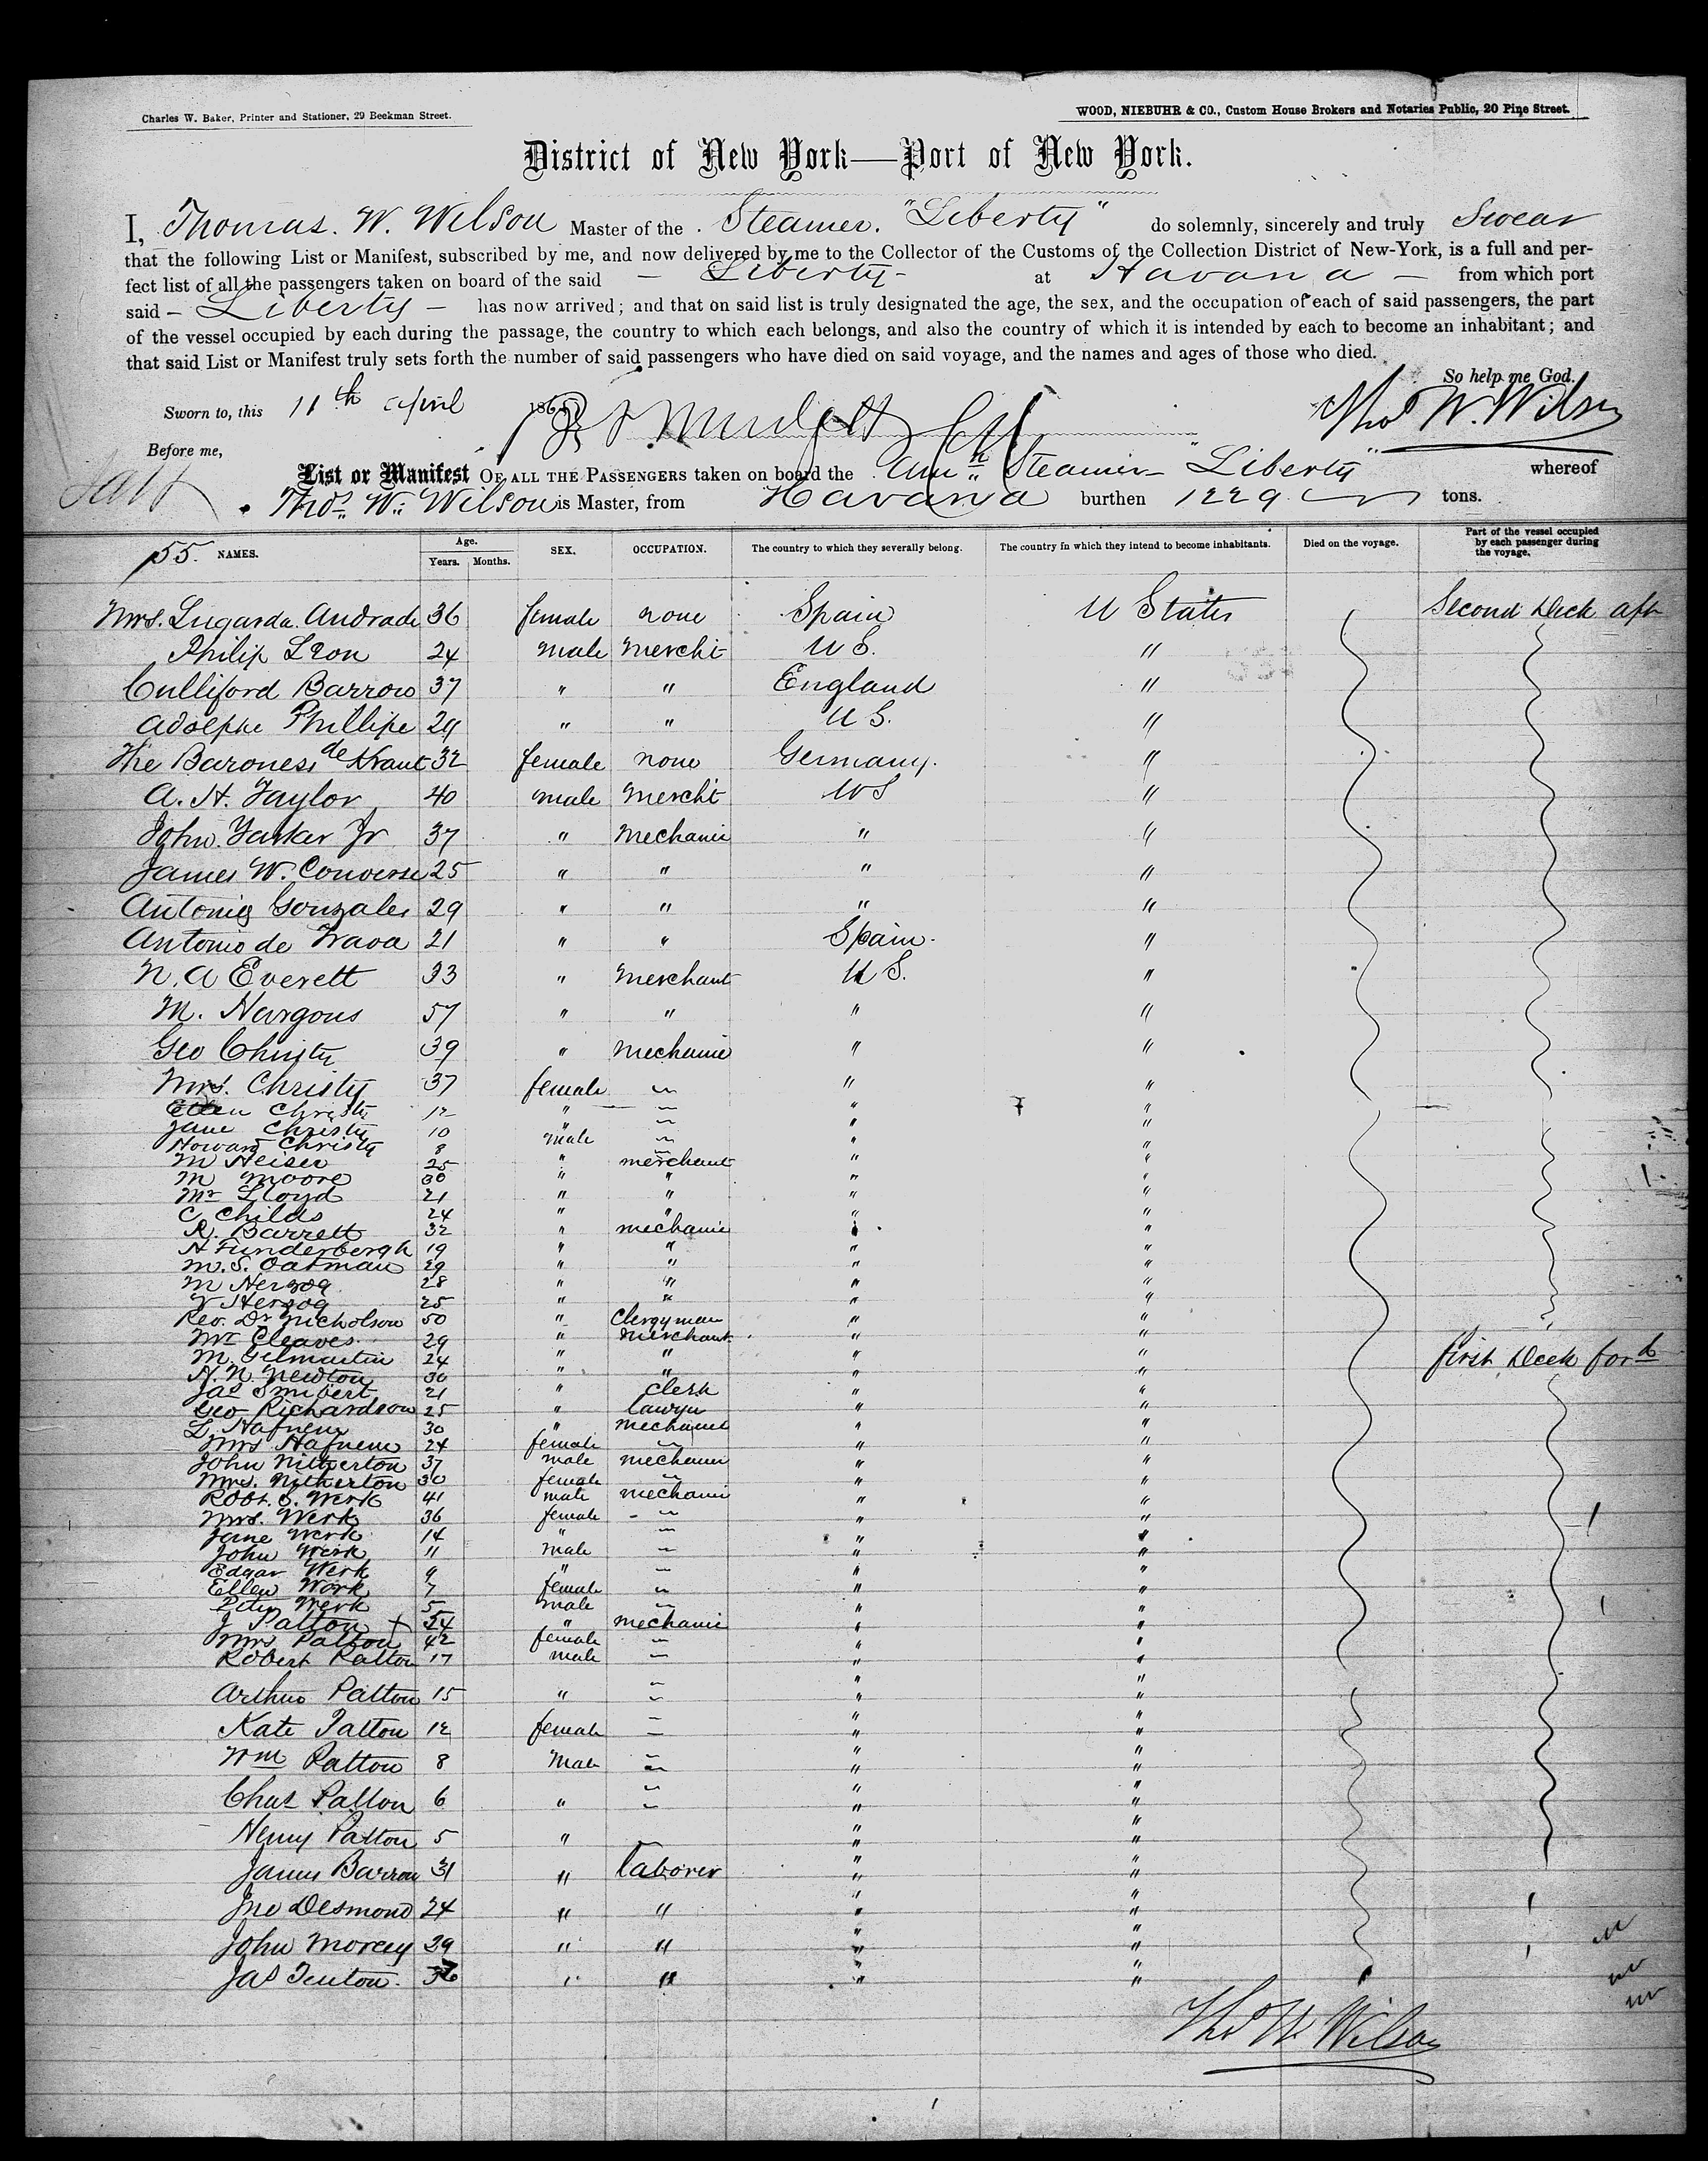 Charles W. Baker, Printer and Stationer, 29 Beekman Street.
WOOD, NIEBUHR & CO., Custom House Brokers and Notaries Public, 20 Pine Street.
District of New York—Port of New York.
I, Thomas. W. Wilson Master of the Steamer. "Liberty" do solemnly, sincerely and truly Swear
that the following List or Manifest, subscribed by me, and now delivered by me to the Collector of the Customs of the Collection District of New-York, is a full and per-
fect list of all the passengers taken on board of the said — Liberty - at Havana — from which port
said — Liberty — has now arrived; and that on said list is truly designated the age, the sex, and the occupation of each of said passengers, the part
of the vessel occupied by each during the passage, the country to which each belongs, and also the country of which it is intended by each to become an inhabitant; and
that said List or Manifest truly sets forth the number of said passengers who have died on said voyage, and the names and ages of those who died.
So help me God.
Sworn to, this 11th April 186 Thos W. Wilson
Before me,
List or Manifest OF ALL THE PASSENGERS taken on board the Steamer "Liberty" whereof
Thos. W. Wilson is Master, from Havana burthen 1229 tons.
55. NAMES. Age. Years. Months. SEX. OCCUPATION. The country to which they severally belong. The country in which they intend to become inhabitants. Died on the voyage. Part of the vessel occupied by each passenger during the voyage.
Mrs. Lugarda Andrade 36 female none Spain U States Second Deck aft
Philip Leon 24 male Mercht U S. "
Culliford Barrow 37 " " England "
Adolphe Phillipe 29 " " U S. "
The Baroness de Kraut 32 female none Germany. "
A. H. Taylor 40 male Mercht U S "
John Yarker Jr 37 " Mechanic " "
James W. Converse 25 " " " "
Antonio Gonzales 29 " " " "
Antonio de Trava 21 " " Spain. "
N. A Everett 33 " Merchant U S. "
M. Hargous 57 " " " "
Geo Christy 39 " Mechanic " "
Mrs. Christy 37 female — " "
Ellen Christy 12 " — " "
Jane Christy 10 " — " "
Howard Christy 8 male — " "
M Heiser 25 " merchant " "
M Moore 30 " " " "
Mr Lloyd 21 " " " "
C Childs 24 " " " "
R. Barrett 32 " mechanic " "
H Funderbergh 19 " " " "
M. S. Oatman 29 " " " "
M Herzog 28 " " " "
Y Herzog 25 " " " "
Rev. Dr Nicholson 50 " Clergyman " "
Mr Cleaves 29 " Merchant " "
M. Gilmartin 24 " " " " first Deck ford
H. N. Newton 30 " " " "
Jas Smibert 21 " Clerk " "
Geo Richardson 25 " Lawyer " "
L. Hafnem 30 " Mechanic " "
Mrs Hafnem 24 female — " "
John Nitherton 37 male mechanic " "
Mrs. Nitherton 30 female — " "
Robt. S. Werk 41 male mechanic " "
Mrs. Werk 36 female — " "
Jane Werk 14 " — " "
John Werk 11 male — " "
Edgar Werk 9 " — " "
Ellen Work 7 female — " "
Peter Werk 5 male — " "
J Patton + 54 " mechanic " "
Mrs Patton 42 female — " "
Robert Patton 17 male — " "
Arthur Patton 15 " — " "
Kate Patton 12 female — " "
Wm Patton 8 Male — " "
Chas Patton 6 " — " "
Henry Patton 5 " — " "
James Barron 31 " laborer " "
Jno Desmond 24 " " " "
John Morcey 29 " " " "
Jas Tenton. " " " "
Thos W. Wilson